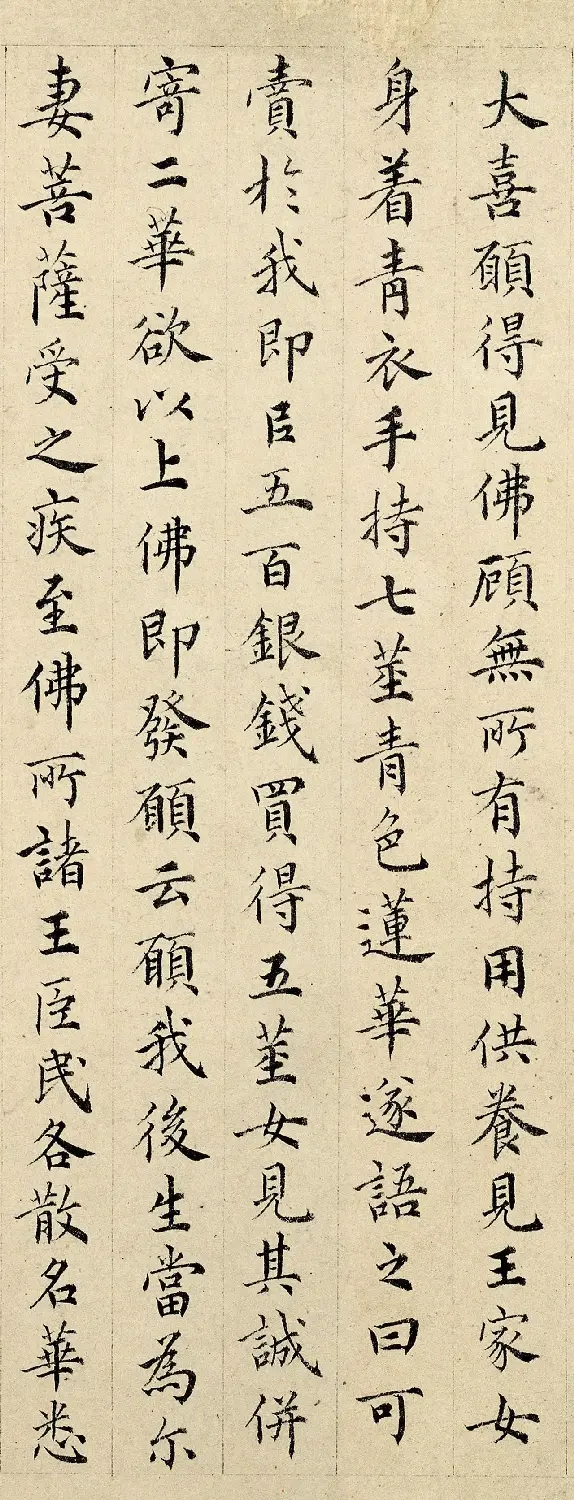 大喜願得見佛顧無所有持用供養見王家女
身着青衣手持七莖青色蓮華遂語之曰可
賣於我即以五百銀錢買得五莖女見其誠併
寄二華欲以上佛即發願云願我後生當為尔
妻菩薩受之疾至佛所諸王臣民各散名華悉